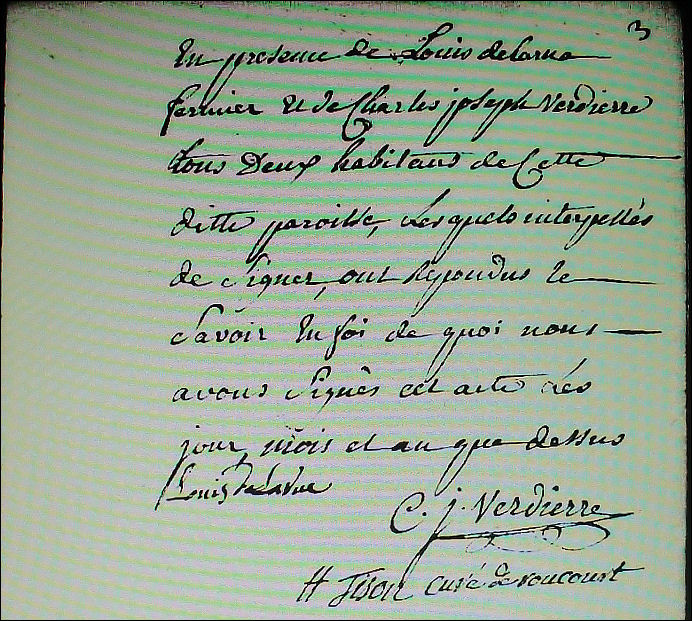 3
En presence de Louis delarue
fermier et de Charles joseph Verdierre
tous Deux habitans de Cette
ditte paroisse, Lesquels interpellés
de Signer, ont Repondus le
Savoir En foi de quoi nous
avons Signés cet acte Les
jour, mois et an que dessus
Louis Delarue
C. j. Verdierre
H Tison Curé de roucourt